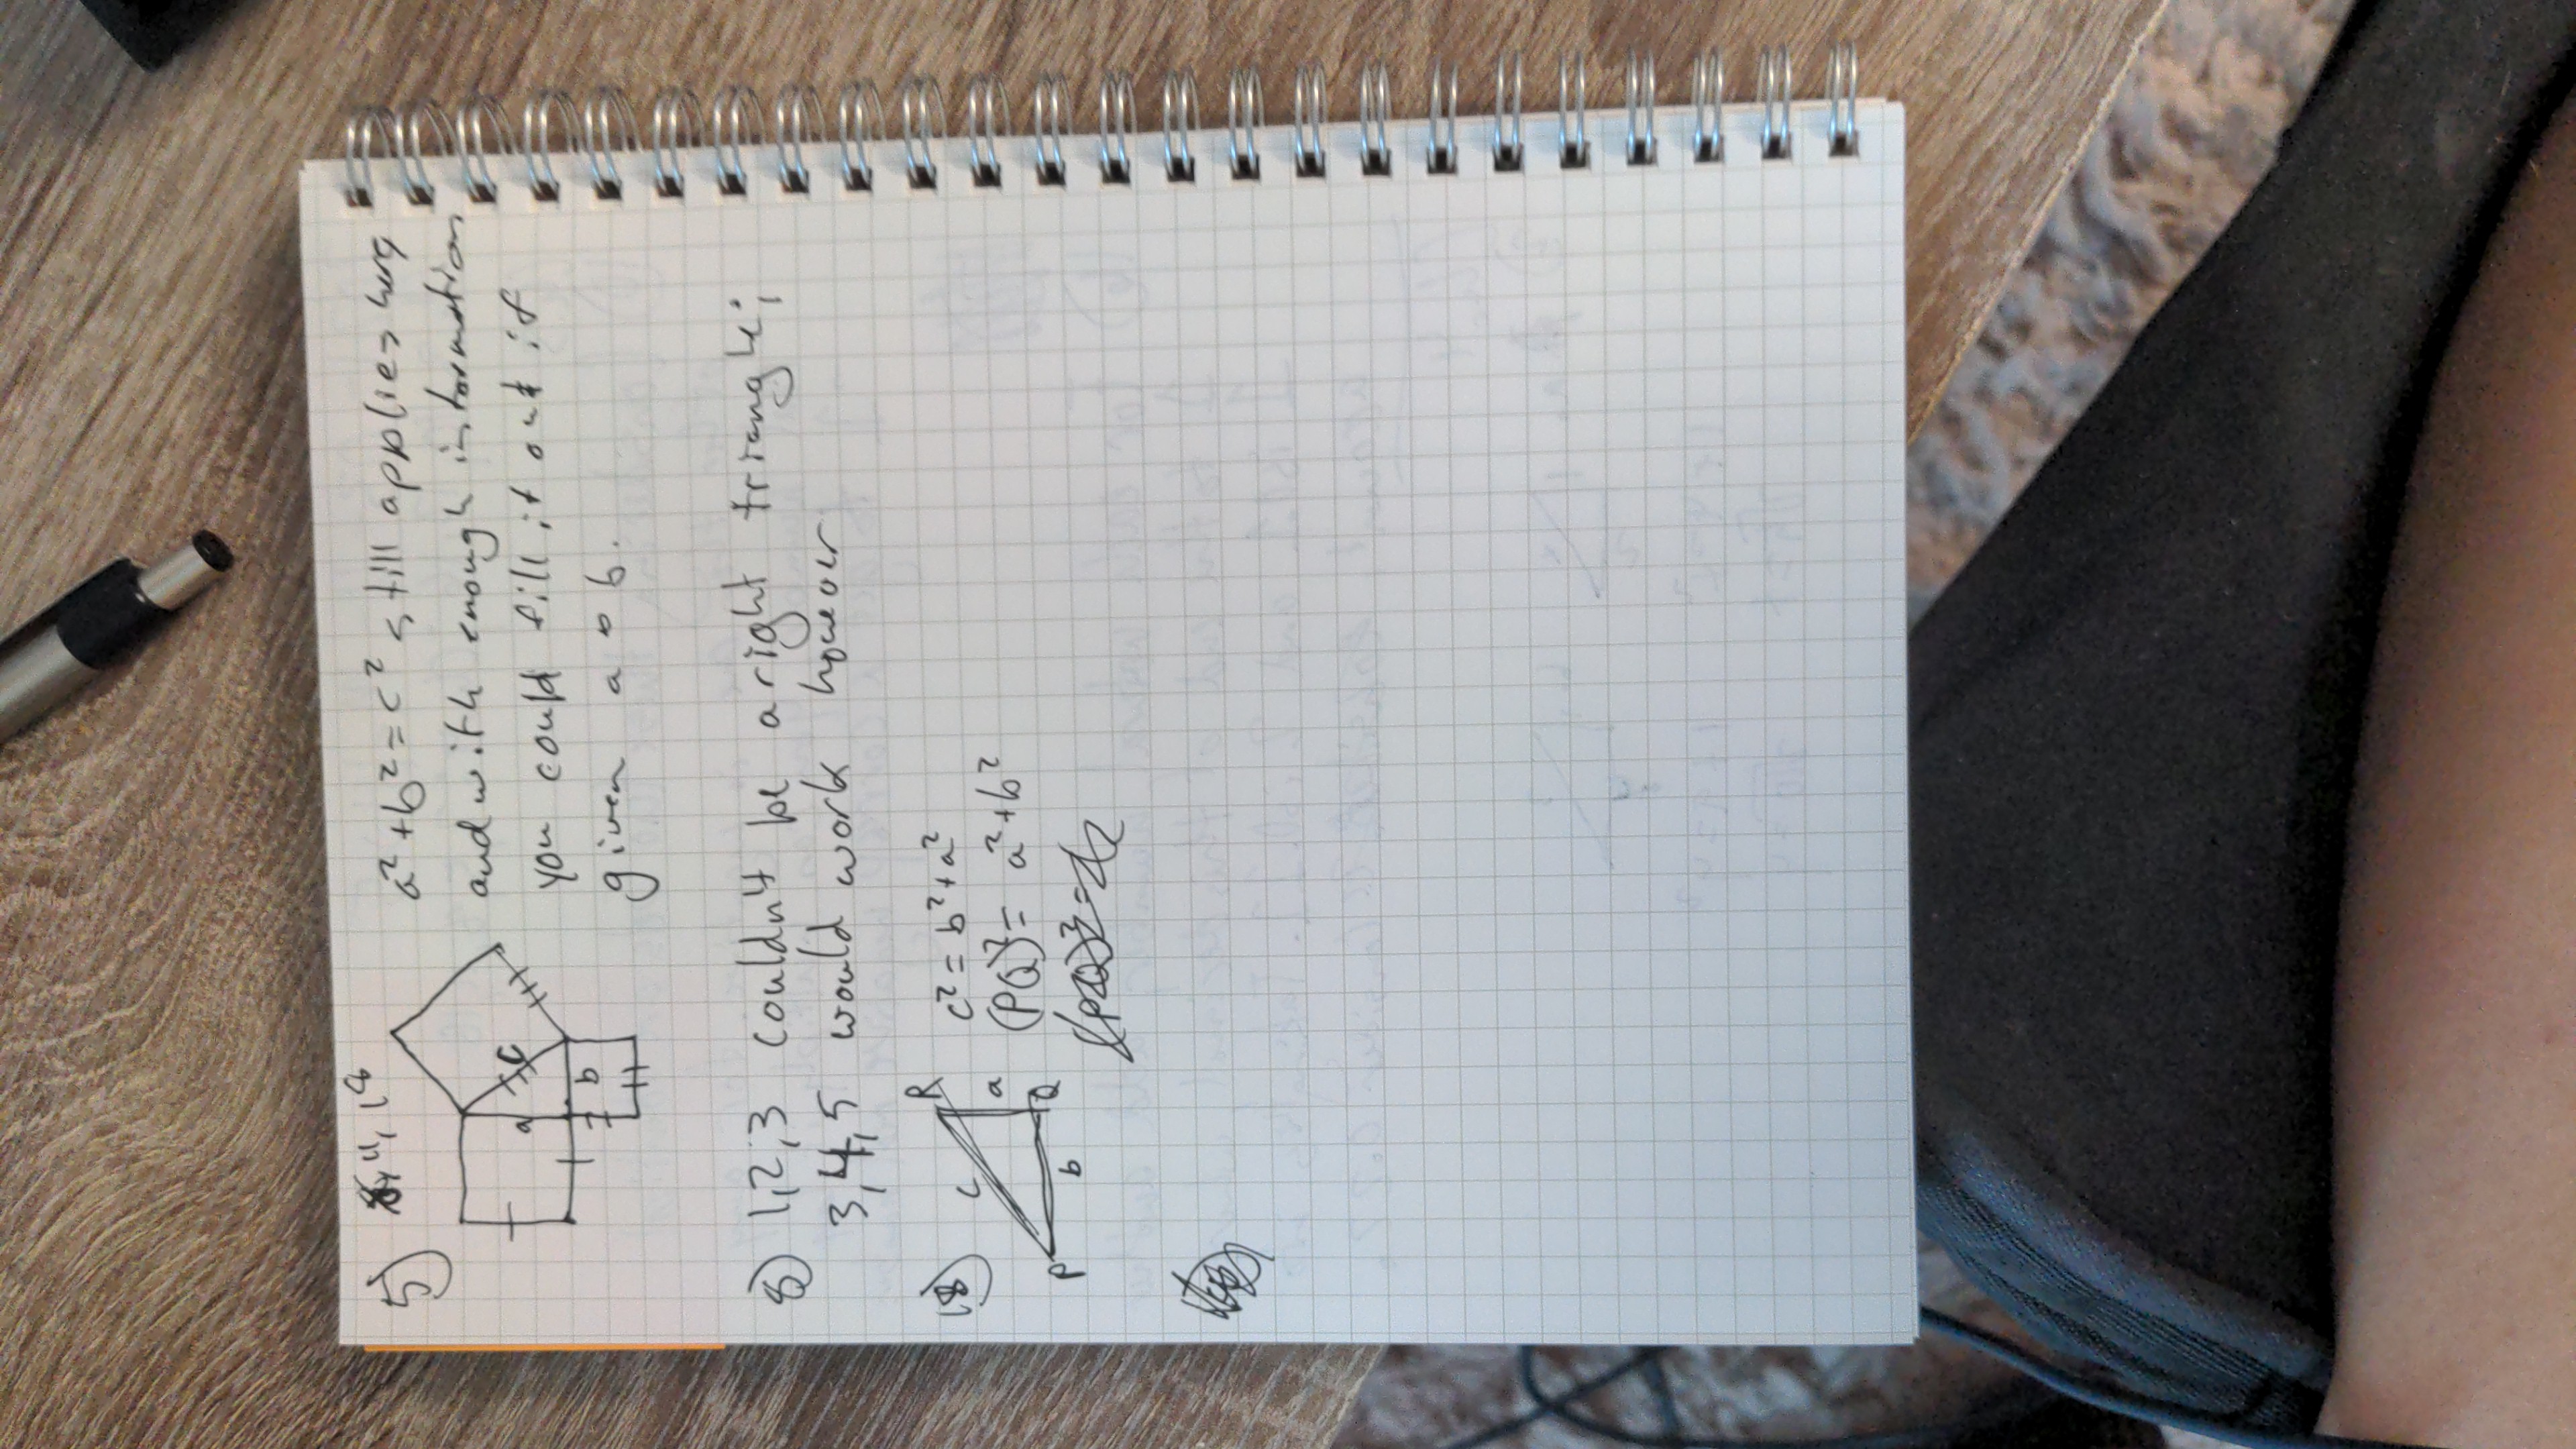 5) 11, 18
a c b
a²+b²=c² still applies here
and with enough information
you could fill it out if
given a b.
8) 1,2,3 couldn't be a right triangle;
3,4,5 would work however
18) P Q R a b c
c²=b²+a²
(PQ)²= a²+b²